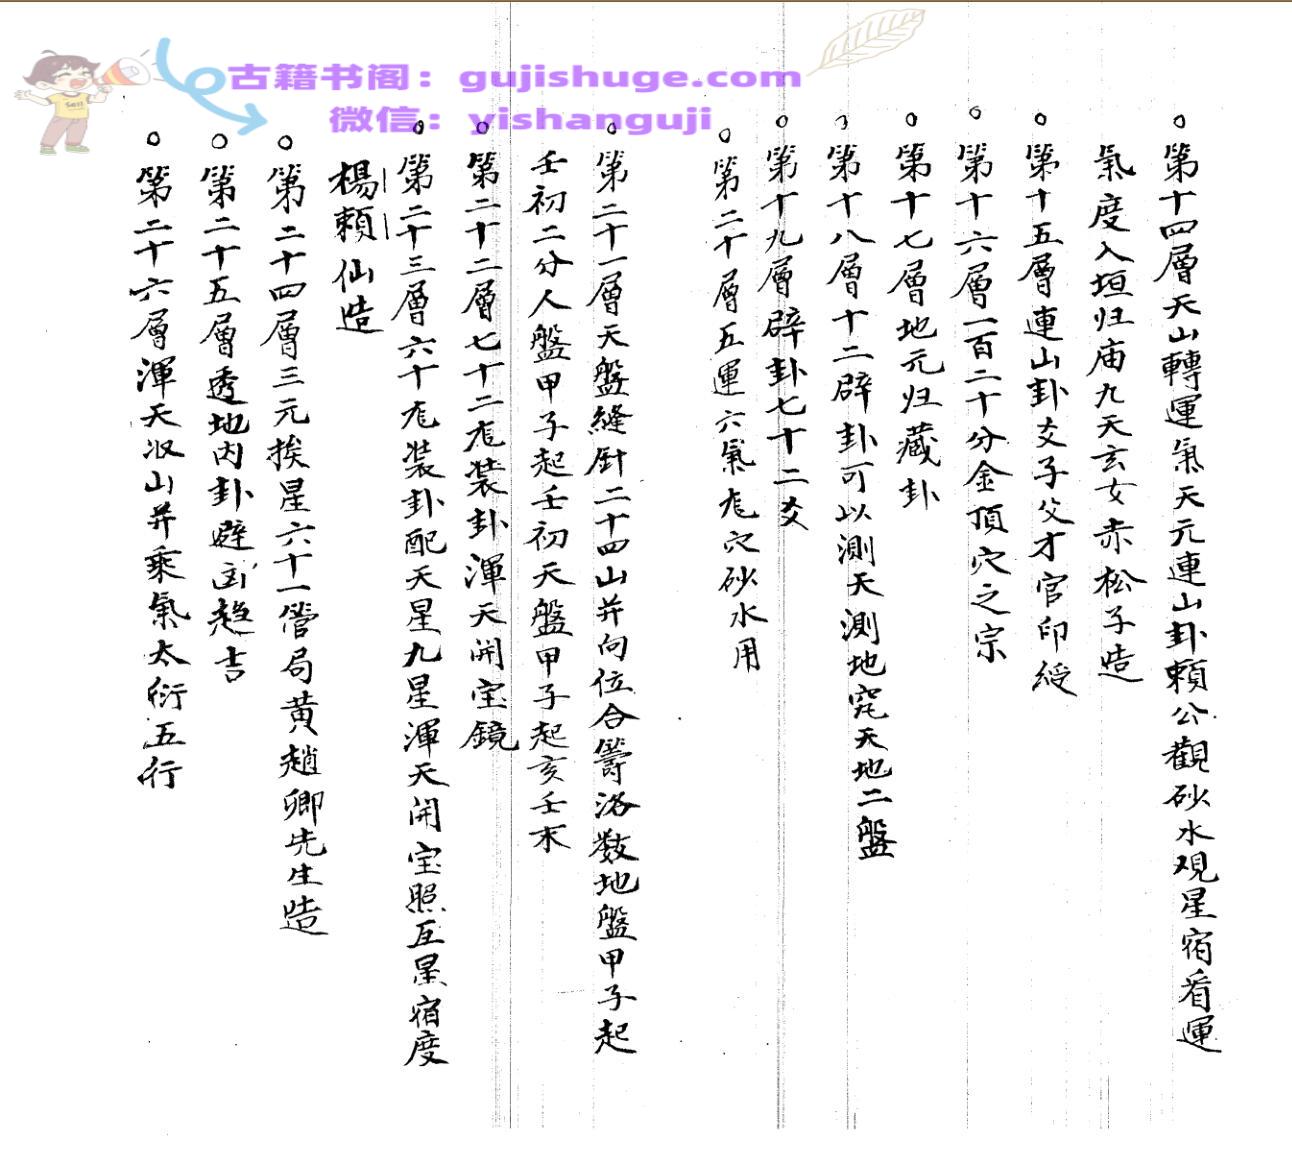 古籍书阁：gujishuge.com
微信：yishanguji
Sell
第十四層天山轉運氣天元連山卦賴公觀砂水观星宿看運
氣度入垣归庙九天玄女赤松子造
第十五層連山卦爻子父才官印綬
第十六層一百二十分金頂穴之宗
第十七層地元归藏卦
第十八層十二辟卦可以測天測地究天地二盤
第十九層辟卦七十二爻
第二十層五運六氣 穴砂水用
第二十一層天盤縫針二十四山并向位合籌洛数地盤甲子起
壬初二分人盤甲子起壬初天盤甲子起亥壬末
第二十二層七十二 装卦渾天開宝鏡
第二十三層六十 装卦配天星九星渾天開宝照五星宿度
楊賴仙造
第二十四層三元挨星六十一管局黄趙卿先生造
第二十五層透地内卦避凶趋吉
第二十六層渾天收山并乘氣太衍五行